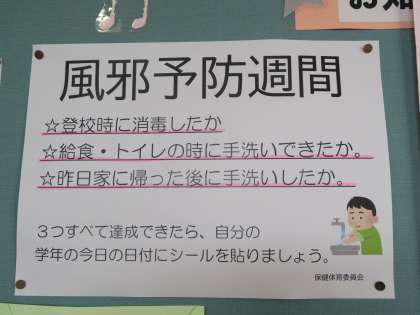 お知
風邪予防週間
☆登校時に消毒したか
☆給食・トイレの時に手洗いできたか。
☆昨日家に帰った後に手洗いしたか。
３つすべて達成できたら、自分の
学年の今日の日付にシールを貼りましょう。
保健体育委員会